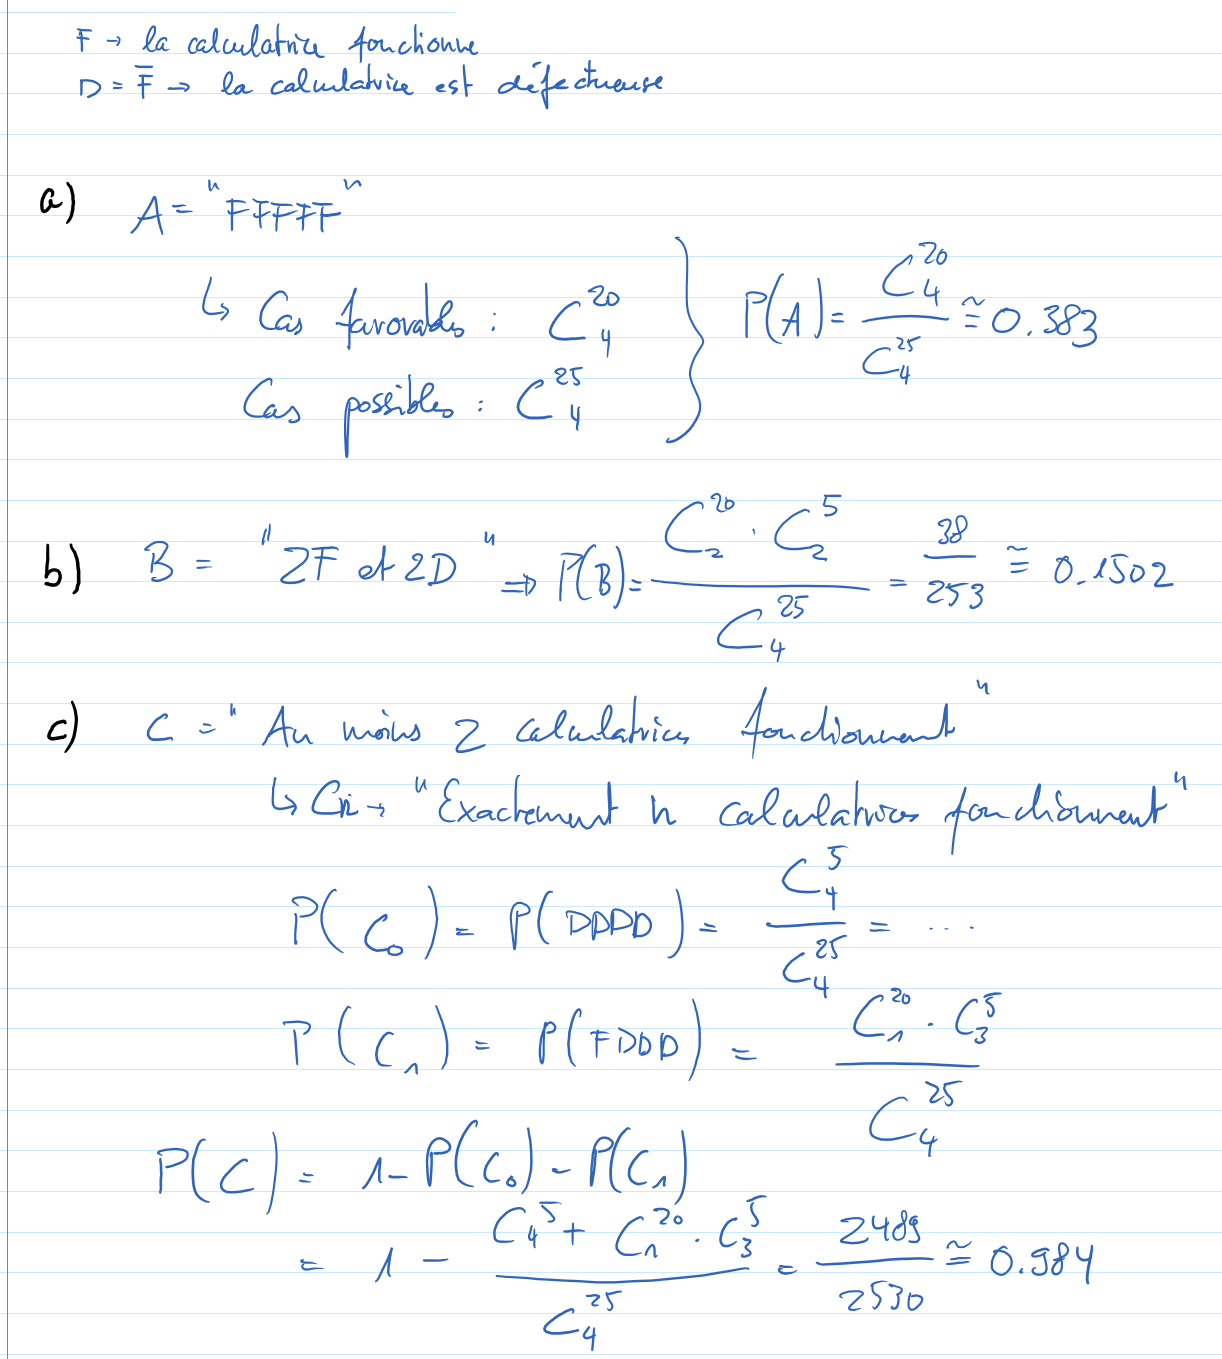 F → la calculatrice fonctionne
D = F̅ → la calculatrice est défectueuse
a) A = "FFFFF"
↳ Cas favorables : C₄²⁰
Cas possibles : C₄²⁵
P(A) = C₄²⁰ / C₄²⁵ ≅ 0.383
b) B = "2F et 2D" ⇒ P(B) = C₂²⁰ · C₂⁵ / C₄²⁵ = 38 / 253 ≅ 0.1502
c) C = "Au moins 2 calculatrices fonctionnent"
↳ Cn → "Exactement n calculatrices fonctionnent"
P(C₀) = P(DDDD) = C₄⁵ / C₄²⁵ = ....
P(C₁) = P(FDDD) = C₁²⁰ · C₃⁵ / C₄²⁵
P(C) = 1 - P(C₀) - P(C₁)
= 1 - C₄⁵ + C₁²⁰ · C₃⁵ / C₄²⁵ = 2489 / 2530 ≅ 0.984